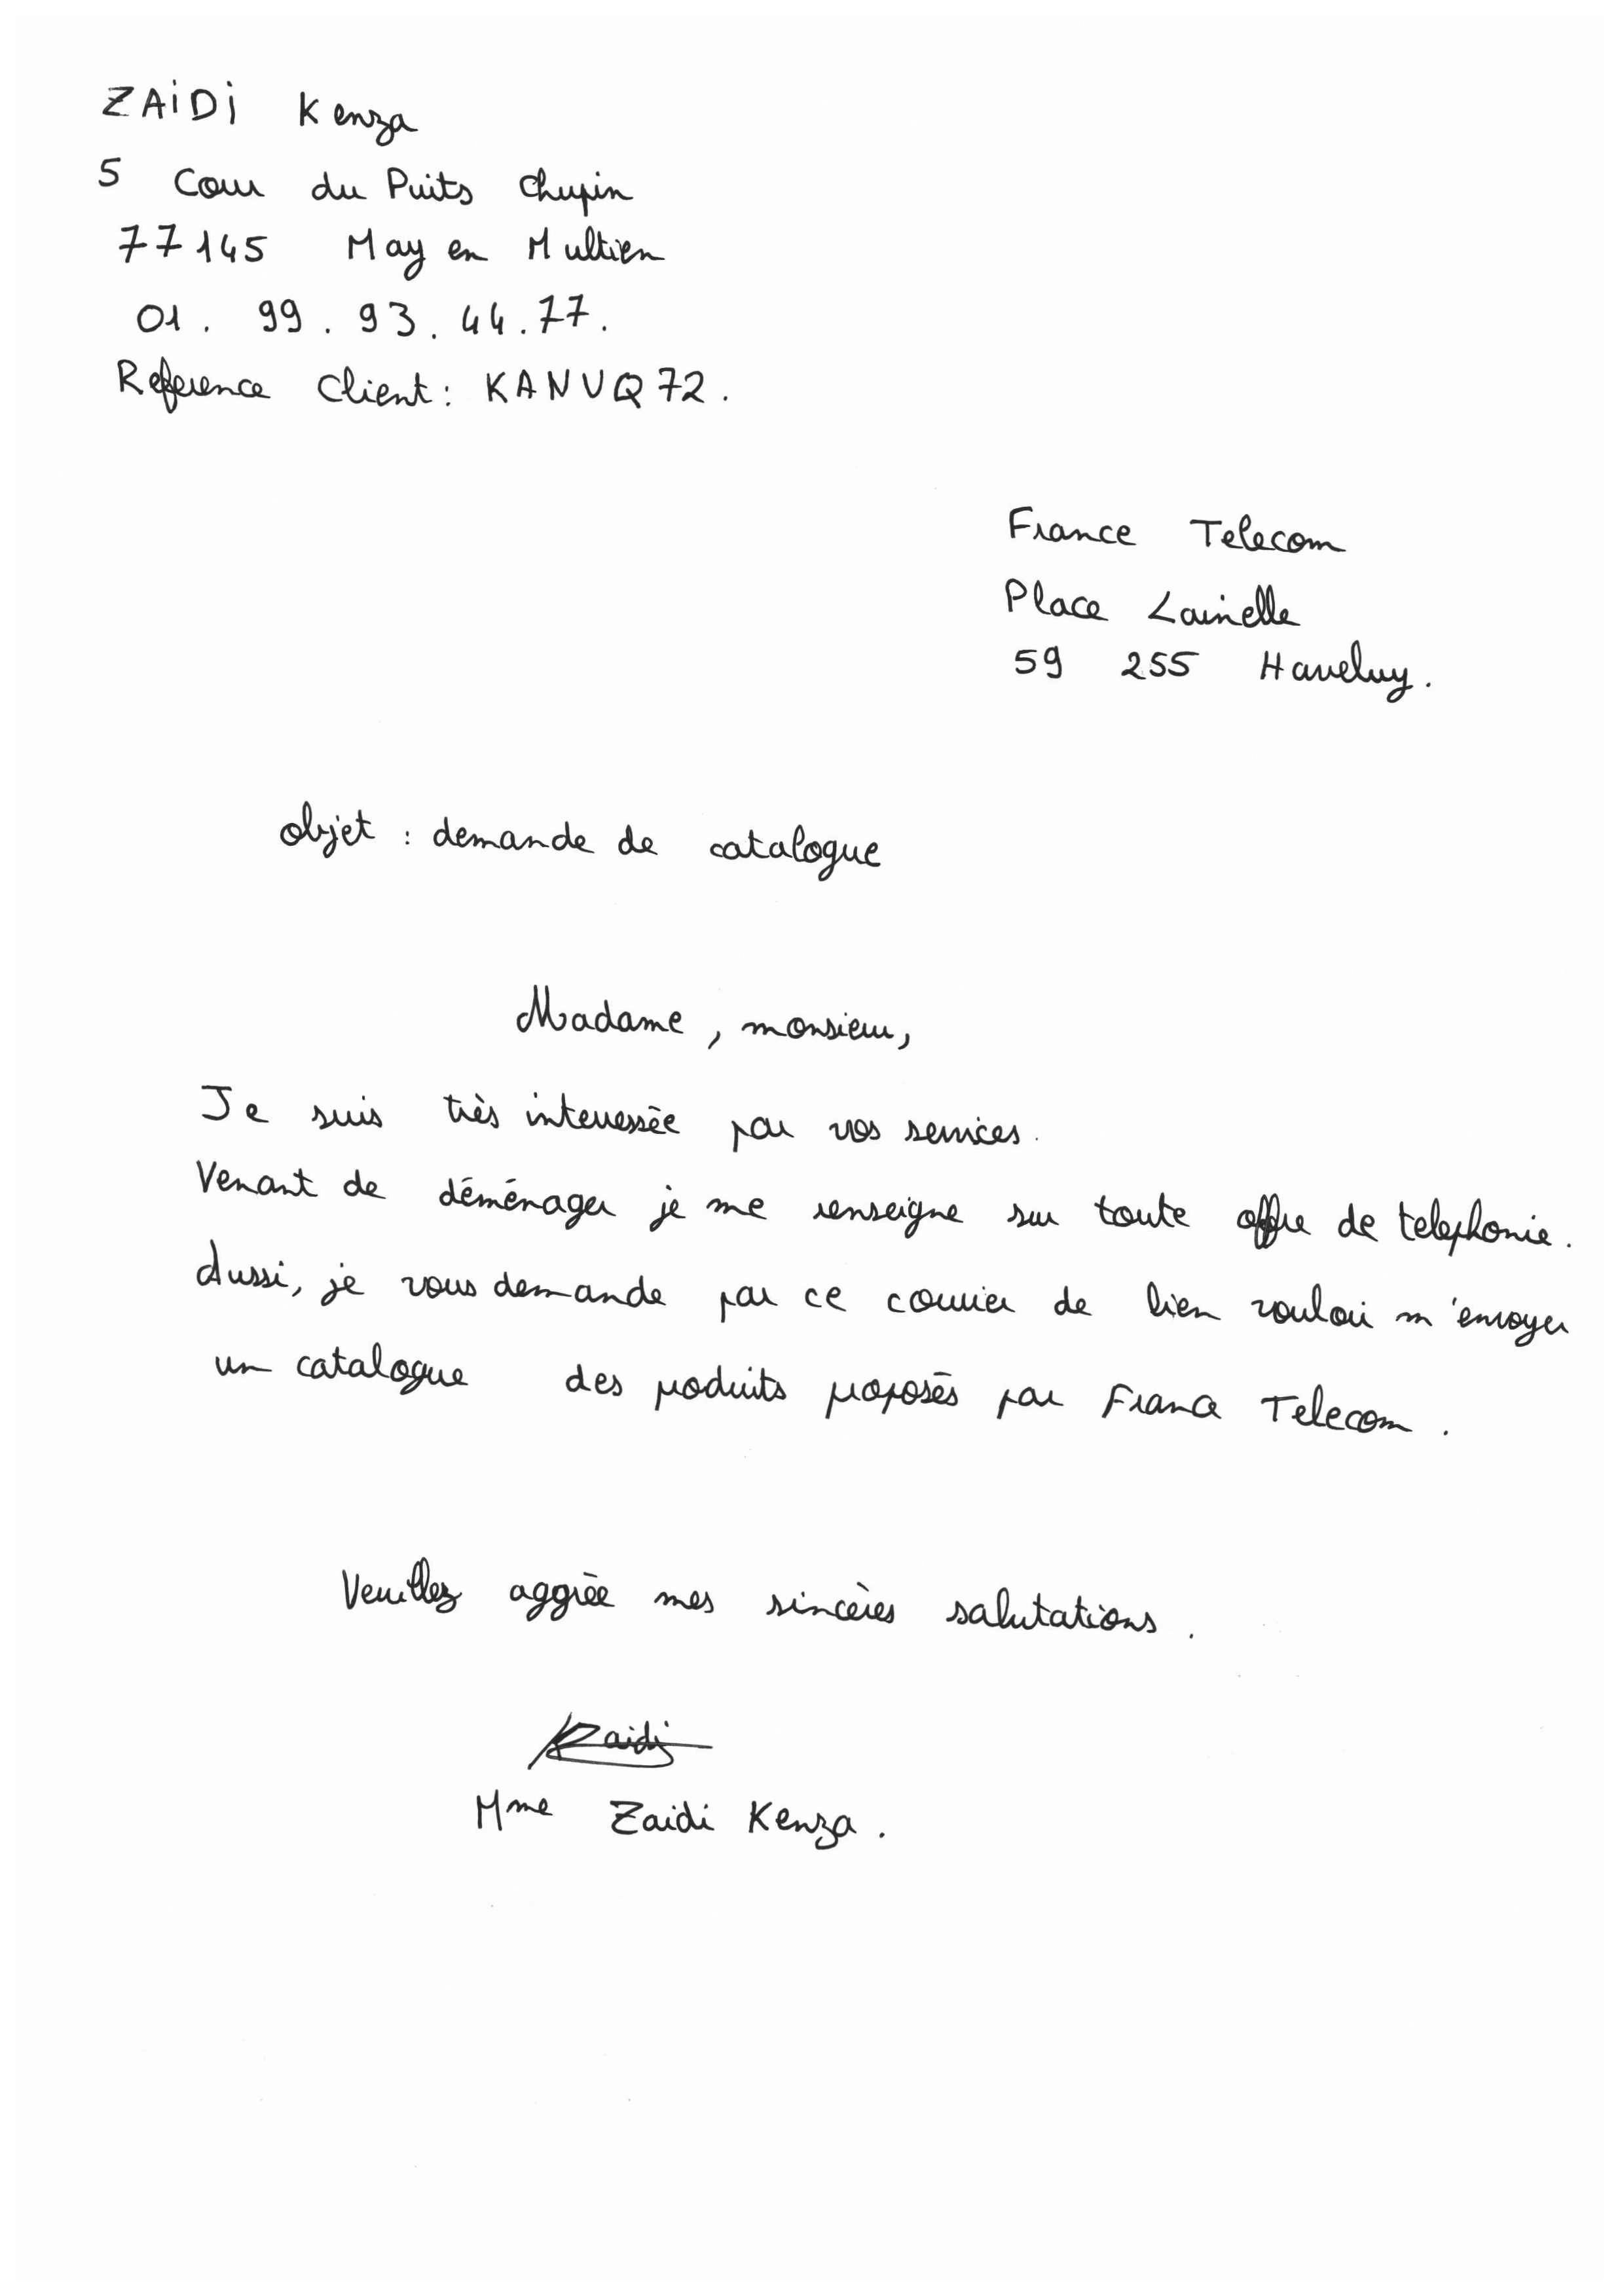 ZAiDi Kenza
5 Cour du Puits Chupin
77145 May en Multien
01. 99. 93. 44. 77.
Reference Client: KANVQ72.
France Telecom
Place
59 255 Haveluy.
objet : demande de catalogue
Madame, monsieur,
Je suis très interressée par vos services.
Venant de déménager je me renseigne sur toute offre de telephonie.
Aussi, je vous demande par ce courrier de bien vouloir m'envoyer
un catalogue des produits proposés par France Telecom.
Veuillez aggréée mes sincères salutations.
Zaidi
Mme Zaidi Kenza.